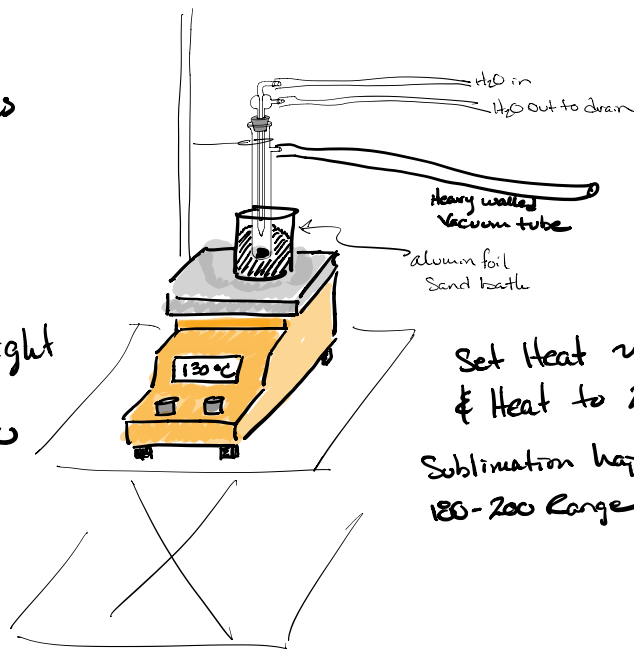 H₂O in
H₂O out to drain
Heavy walled
Vacuum tube
alumin foil
Sand bath
130°C
Set Heat
& Heat to
Sublimation
180-200 Range